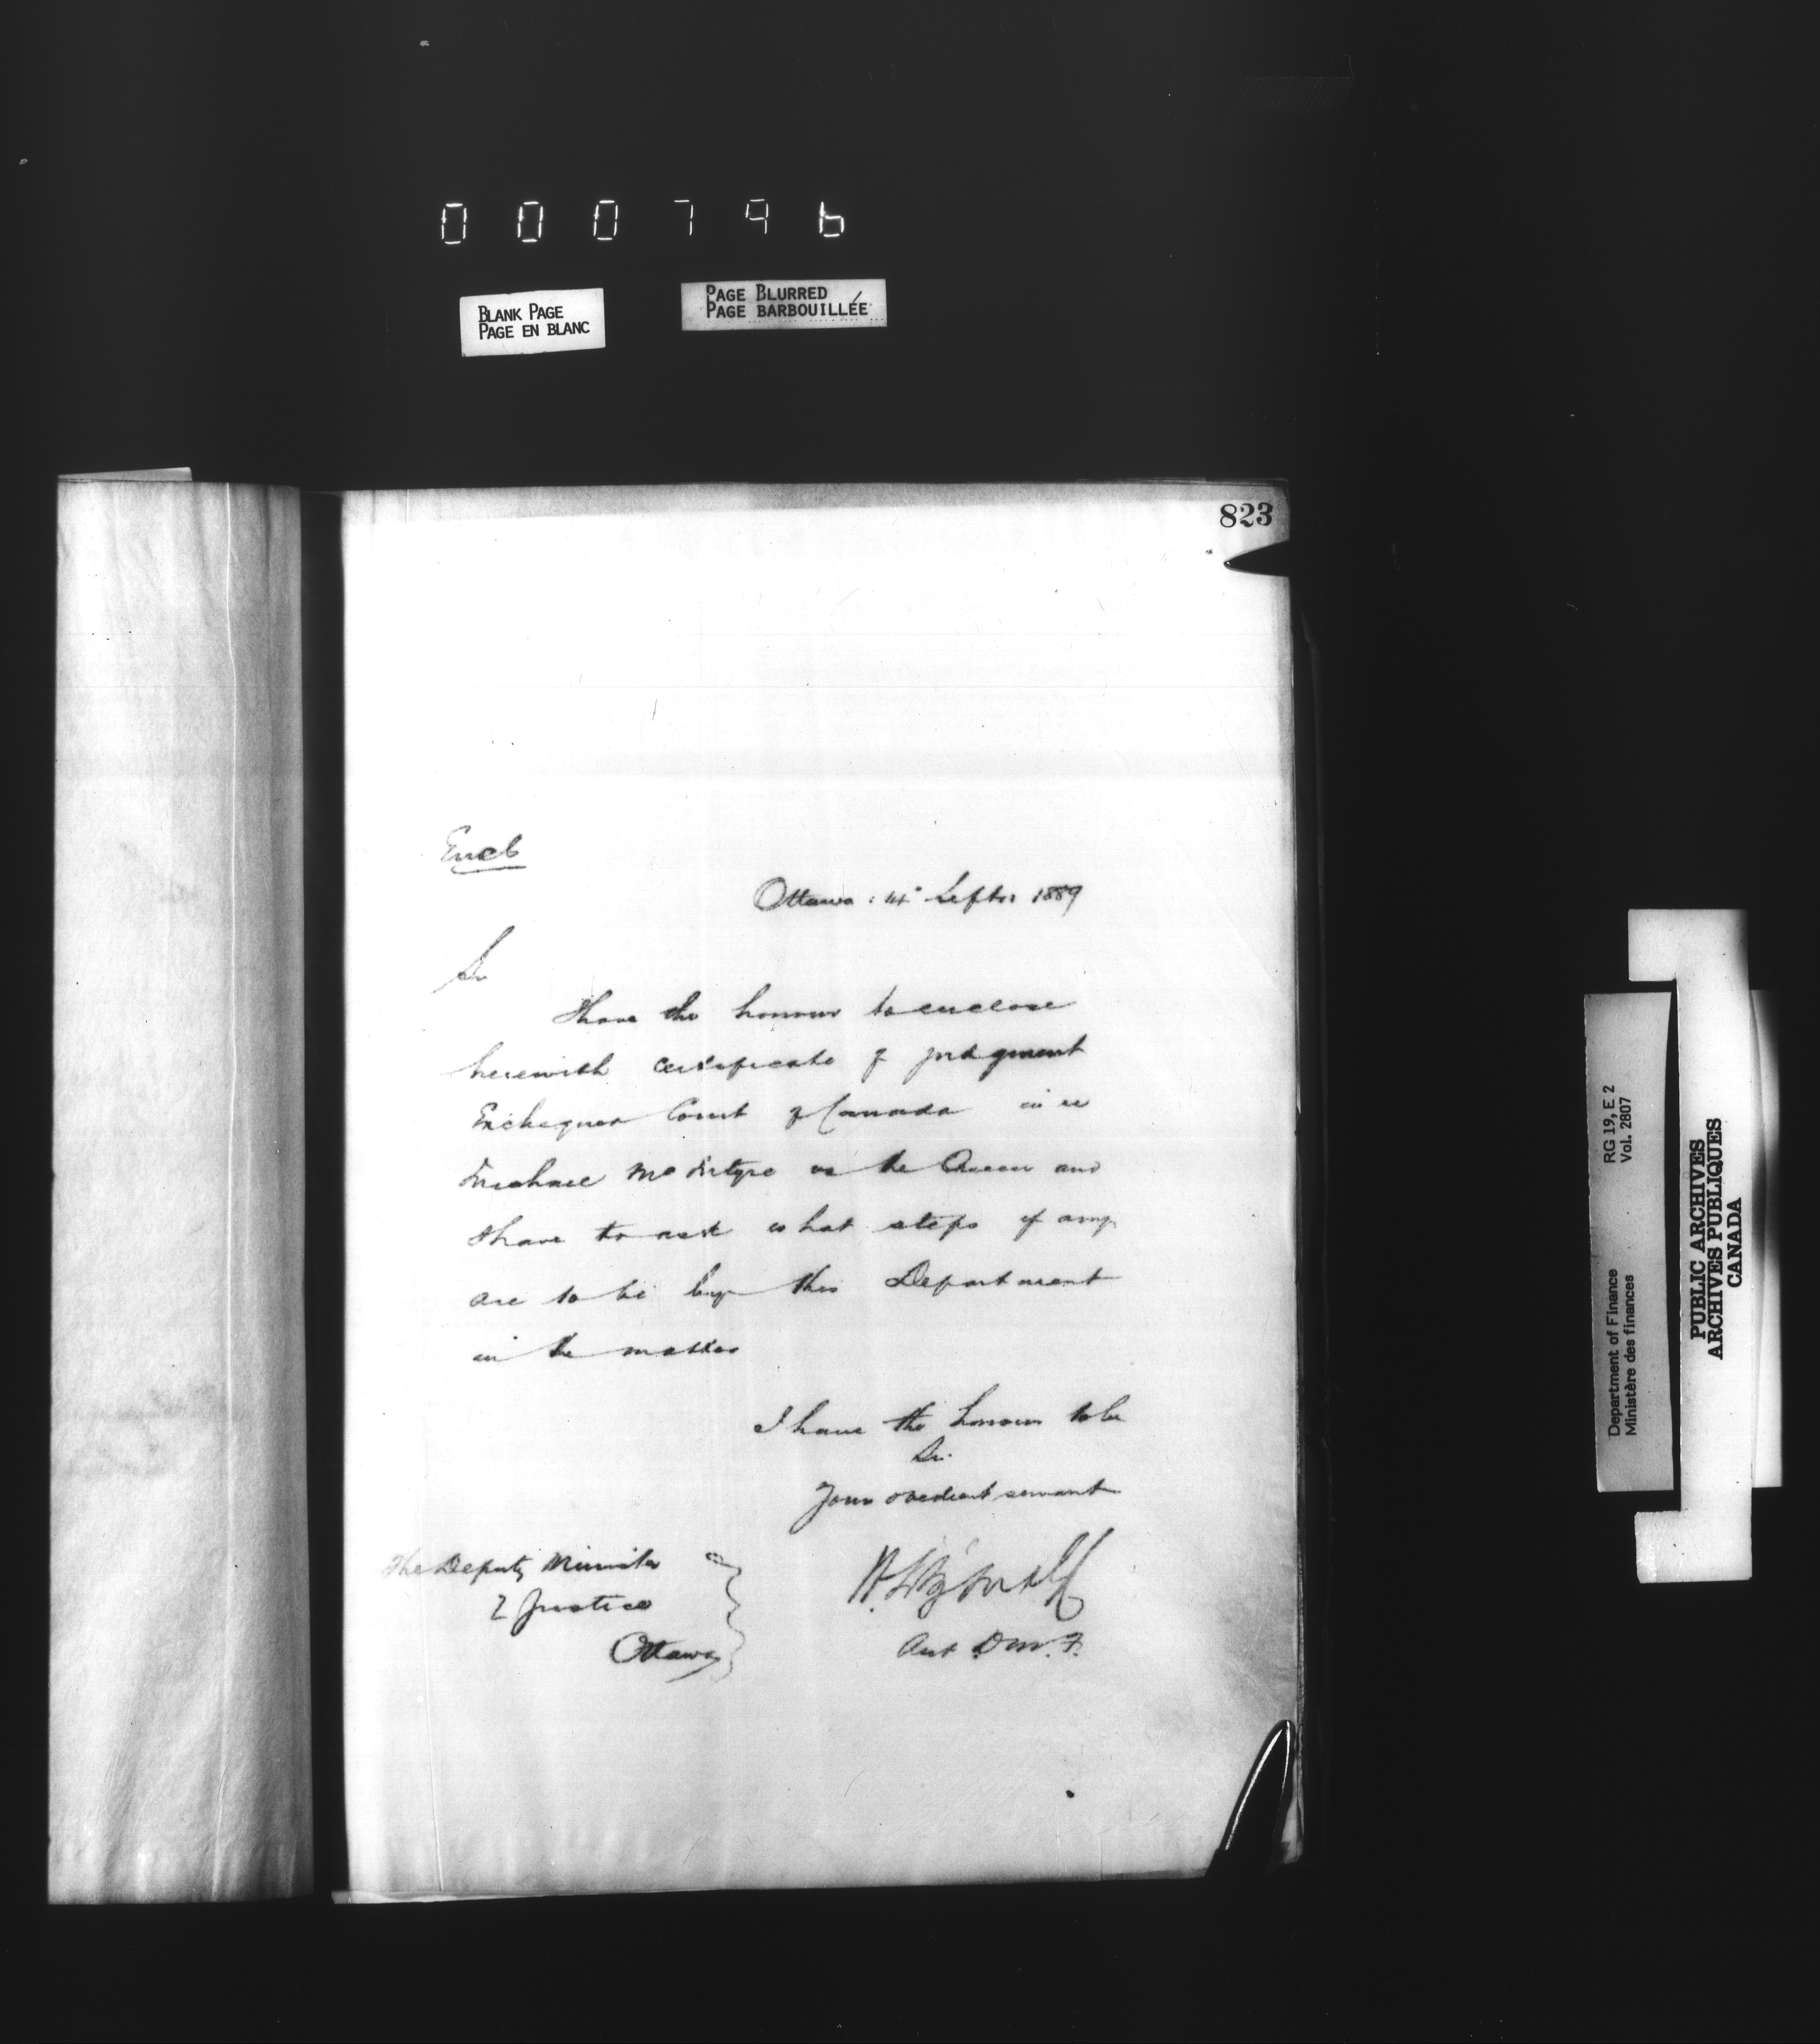 000796
BLANK PAGE
PAGE EN BLANC
PAGE BLURRED
PAGE BARBOUILLÉE
823
Encl
Ottawa : Septr 1889
Sir
I have the honour to enclose
herewith certificate of judgment
Exchequer Court of Canada in re
Michael McIntyre vs the Queen and
I have to ask what steps if any
are to be by this Department
in the matter
I have the honour to be
Sir
Your obedient servant
Asst D.M.F.
The Deputy Minister
of Justice
Ottawa
Department of Finance
Ministère des finances
RG 19, E 2
Vol. 2807
PUBLIC ARCHIVES
ARCHIVES PUBLIQUES
CANADA